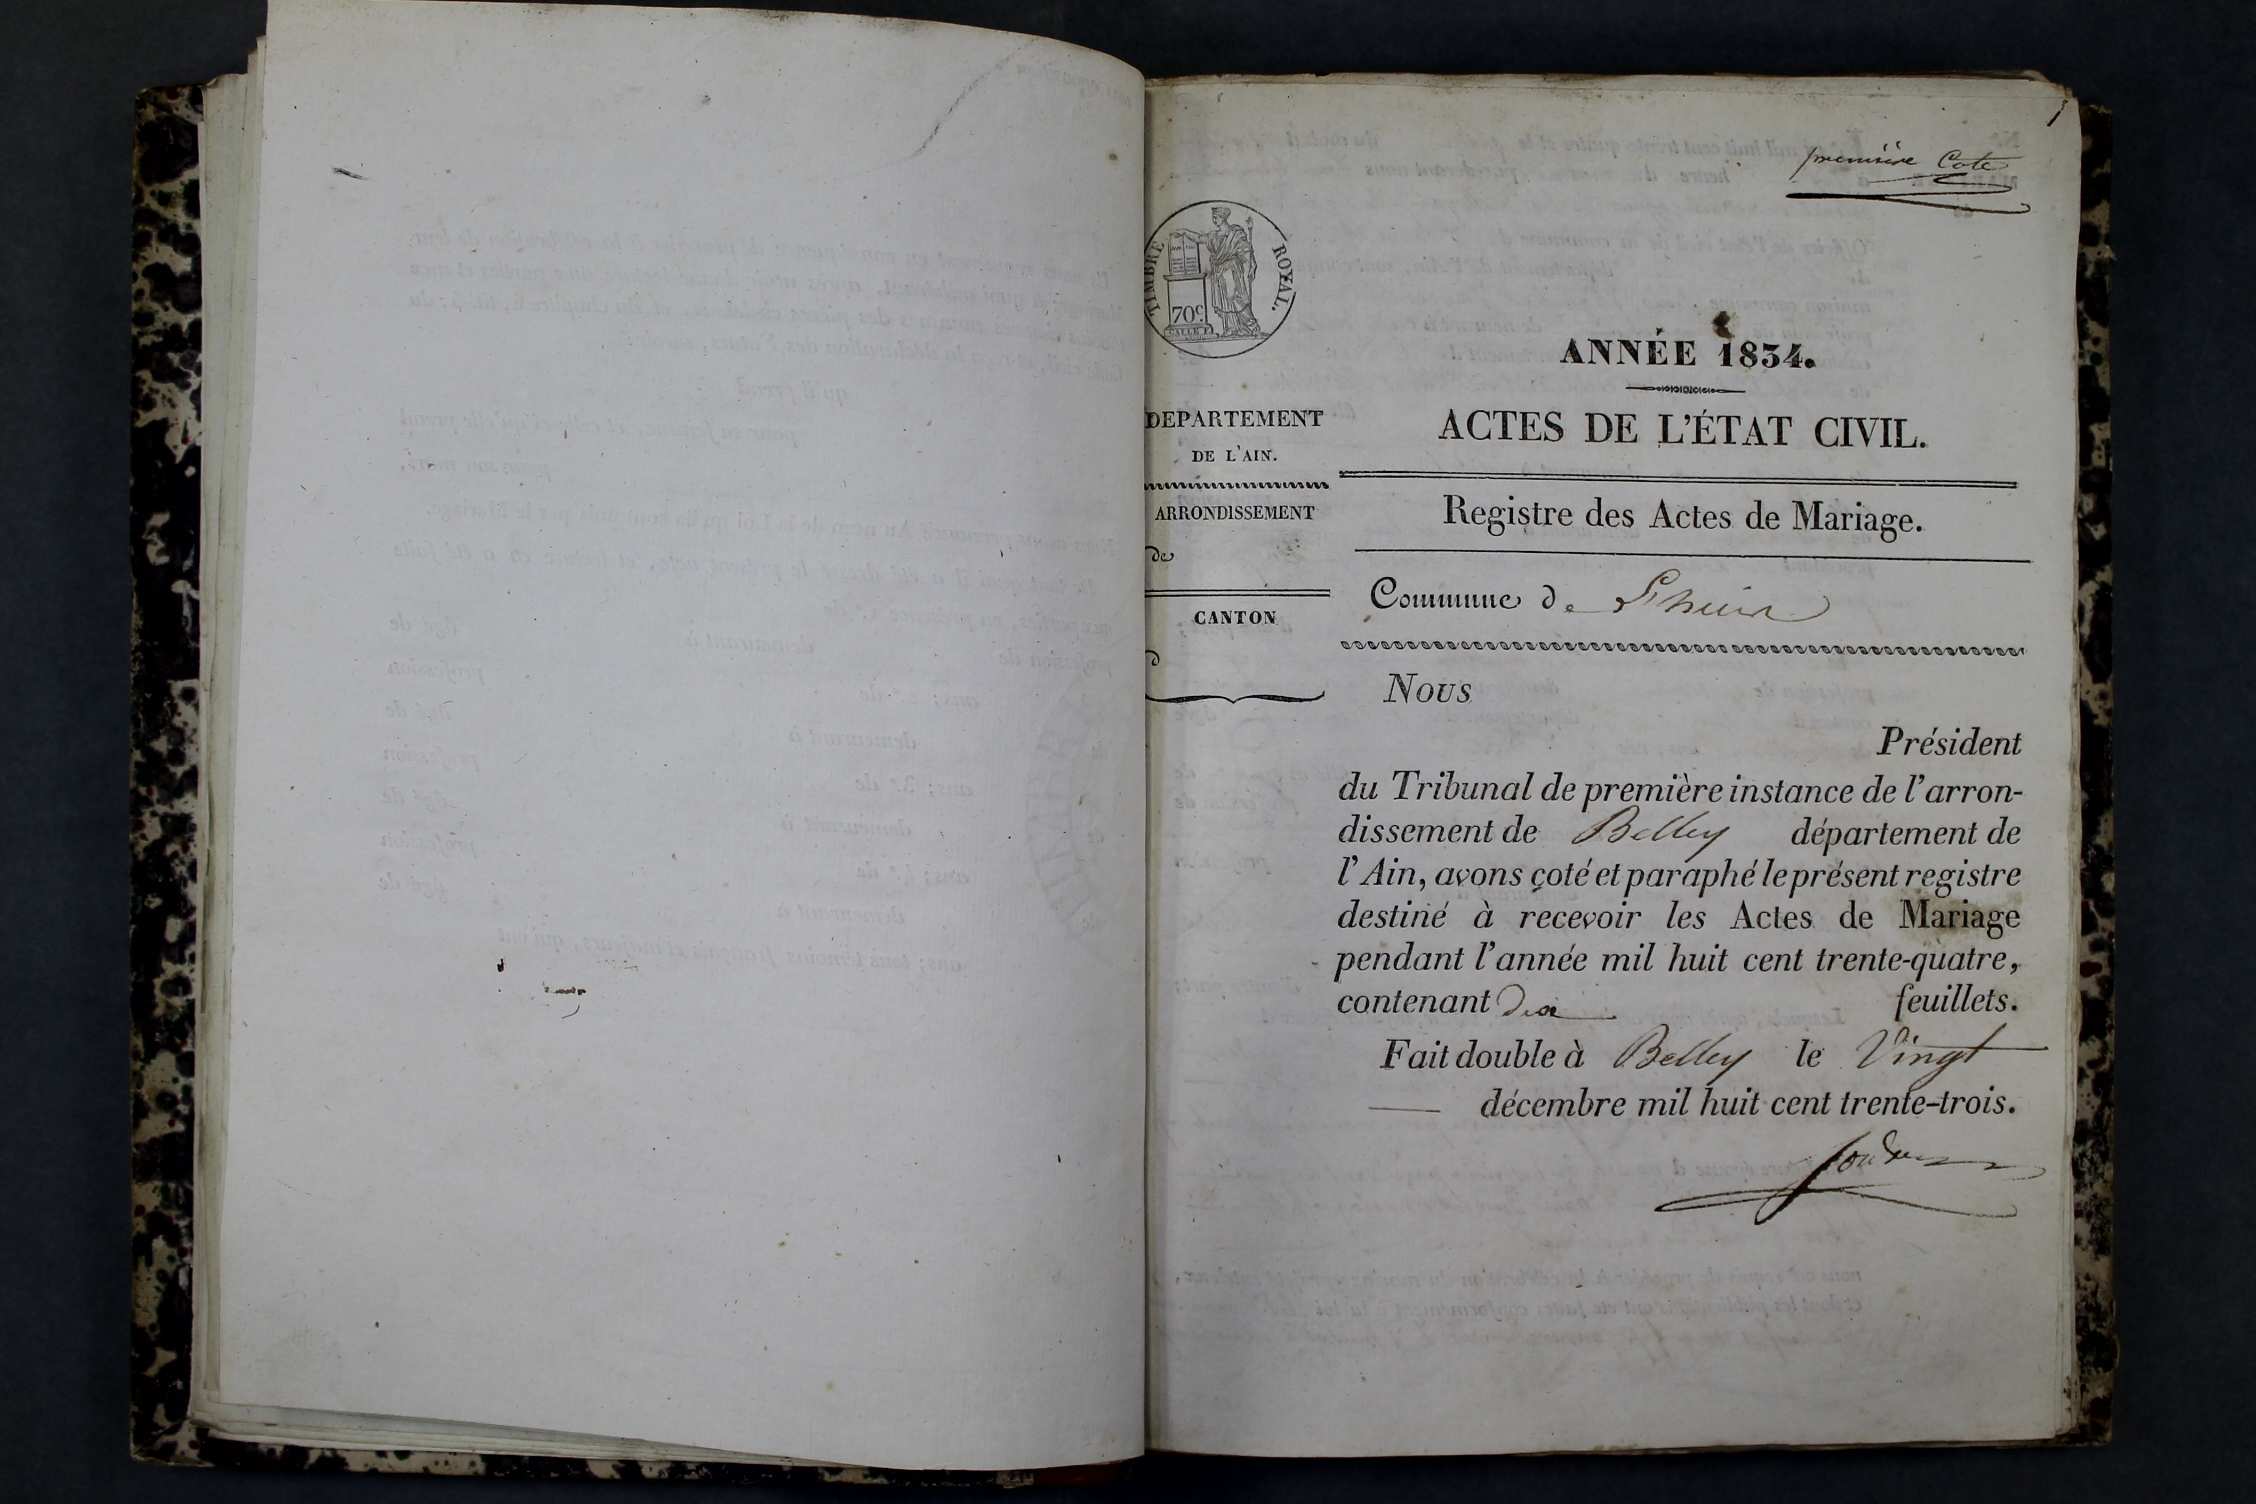 1
première Cote
TIMBRE ROYAL.
70c
ANNÉE 1834.
DEPARTEMENT
DE L'AIN.
ACTES DE L'ÉTAT CIVIL.
Registre des Actes de Mariage.
ARRONDISSEMENT
de
Commune de Lhuis
CANTON
d
Nous
Président
du Tribunal de première instance de l'arron-
dissement de Belley département de
l'Ain, avons coté et paraphé le présent registre
destiné à recevoir les Actes de Mariage
pendant l'année mil huit cent trente-quatre,
contenant dix feuillets.
Fait double à Belley le Vingt
décembre mil huit cent trente-trois.